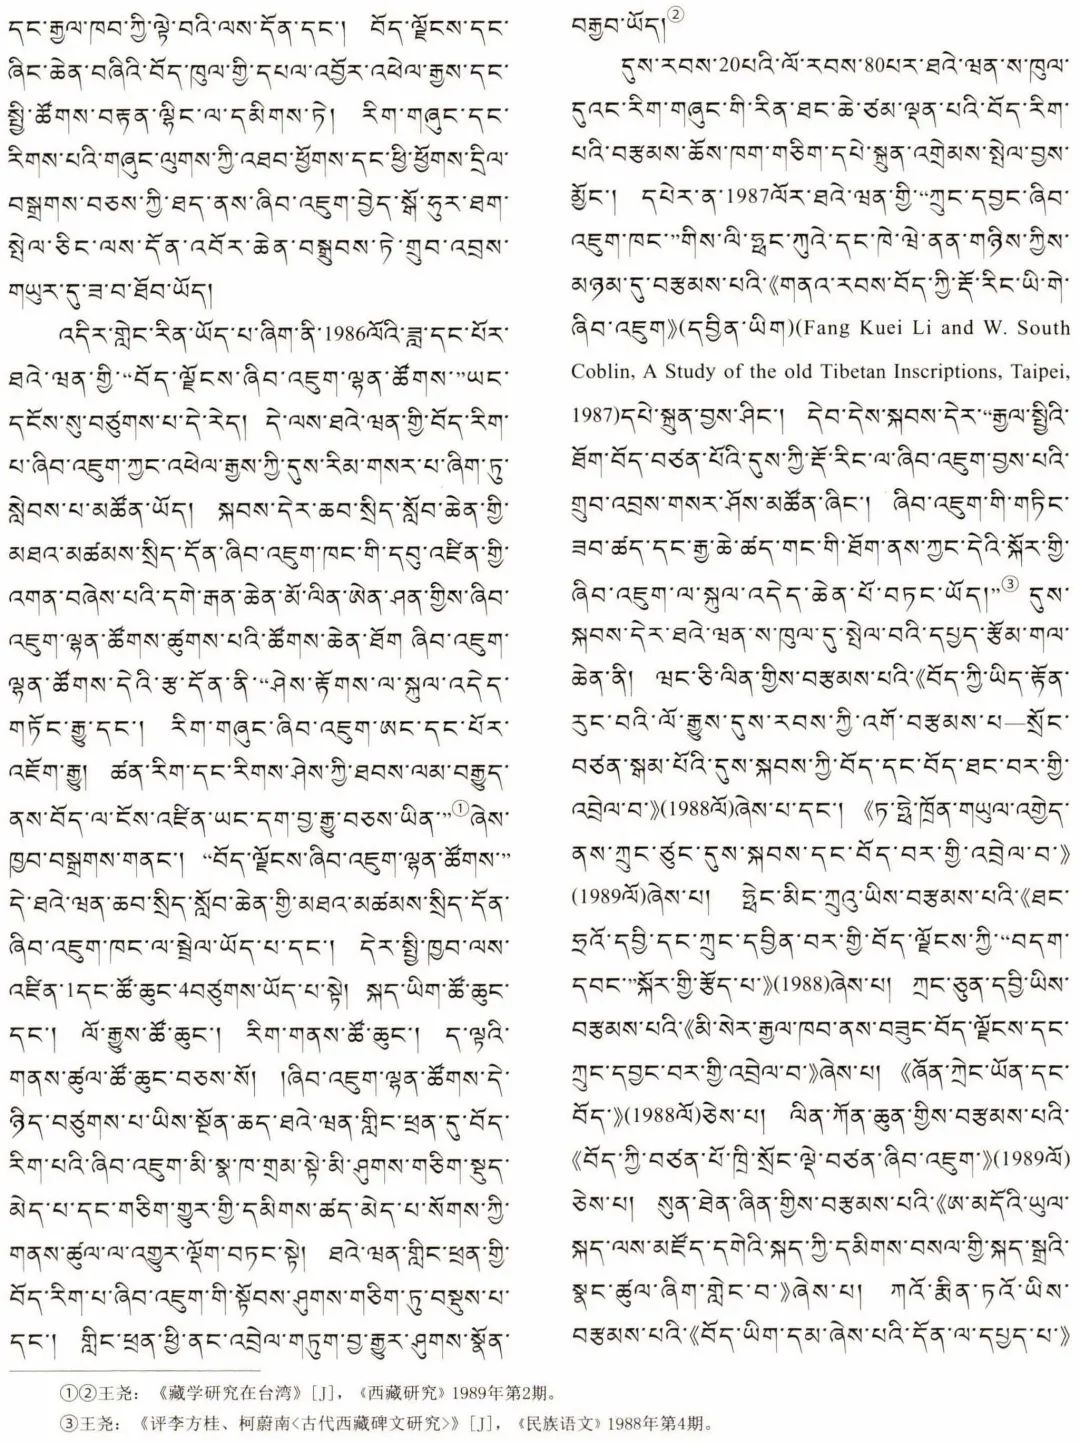 དང་རྒྱལ་ཁབ་ཀྱི་ལྟེ་བའི་ལས་དོན་དང་། བོད་ལྗོངས་དང་
ཞིང་ཆེན་བཞིའི་བོད་ཁུལ་གྱི་དཔལ་འབྱོར་འཕེལ་རྒྱས་དང་
སྤྱི་ཚོགས་བརྟན་ལྷིང་ལ་དམིགས་ཏེ། རིག་གཞུང་དང་
རིགས་པའི་གཞུང་ལུགས་ཀྱི་འཐབ་ཕྱོགས་དང་ཕྱི་ཕྱོགས་དྲིལ་
བསྒྲགས་བཅས་ཀྱི་ཐད་ནས་ཞིབ་འཇུག་བྱེད་སྒོ་ཧུར་ཐག་
སྤེལ་ཅིང་ལས་དོན་འབོར་ཆེན་བསྒྲུབས་ཏེ་གྲུབ་འབྲས་
གཡུར་དུ་ཟ་བ་ཐོབ་ཡོད།
འདིར་གླེང་རིན་ཡོད་པ་ཞིག་ནི་1986ལོའི་ཟླ་དང་པོར་
ཐའེ་ཝན་གྱི་“བོད་ལྗོངས་ཞིབ་འཇུག་ལྷན་ཚོགས་”ཡང་
དངོས་སུ་བཙུགས་པ་དེ་རེད། དེ་ལས་ཐའེ་ཝན་གྱི་བོད་རིག་
པ་ཞིབ་འཇུག་ཀྱང་འཕེལ་རྒྱས་ཀྱི་དུས་རིམ་གསར་པ་ཞིག་ཏུ་
སླེབས་པ་མཚོན་ཡོད། སྐབས་དེར་ཆབ་སྲིད་སློབ་ཆེན་གྱི་
མཐའ་མཚམས་སྲིད་དོན་ཞིབ་འཇུག་ཁང་གི་དབུ་འཛིན་གྱི་
འགན་བཞེས་པའི་དགེ་རྒན་ཆེན་མོ་ལིན་ཨེན་ཤན་གྱིས་ཞིབ་
འཇུག་ལྷན་ཚོགས་ཚུགས་པའི་ཚོགས་ཆེན་ཐོག ཞིབ་འཇུག་
ལྷན་ཚོགས་དེའི་རྩ་དོན་ནི་“ཤེས་རྟོགས་ལ་སྐུལ་འདེད་
གཏོང་རྒྱུ་དང་། རིག་གཞུང་ཞིབ་འཇུག་ཨང་དང་པོར་
འཇོག་རྒྱུ། ཚན་རིག་དང་རིགས་ཤེས་ཀྱི་ཐབས་ལམ་བརྒྱུད་
ནས་བོད་ལ་ངོས་འཛིན་ཡང་དག་བྱ་རྒྱུ་བཅས་ཡིན་”①ཞེས་
ཁྱབ་བསྒྲགས་གནང་། “བོད་ལྗོངས་ཞིབ་འཇུག་ལྷན་ཚོགས་”
དེ་ཐའེ་ཝན་ཆབ་སྲིད་སློབ་ཆེན་གྱི་མཐའ་མཚམས་སྲིད་དོན་
ཞིབ་འཇུག་ཁང་ལ་སྦྲེལ་ཡོད་པ་དང་། དེར་སྤྱི་ཁྱབ་ལས་
འཛིན་1དང་ཚོ་ཆུང་4བཙུགས་ཡོད་པ་སྟེ། སྐད་ཡིག་ཚོ་ཆུང་
དང་། ལོ་རྒྱུས་ཚོ་ཆུང་། རིག་གནས་ཚོ་ཆུང་། ད་ལྟའི་
གནས་ཚུལ་ཚོ་ཆུང་བཅས་སོ། །ཞིབ་འཇུག་ལྷན་ཚོགས་དེ་
ཉིད་བཙུགས་པ་ཡིས་སྔོན་ཆད་ཐའེ་ཝན་གླིང་ཕྲན་དུ་བོད་
རིག་པའི་ཞིབ་འཇུག་མི་སྣ་ཁ་གྲམ་སྟེ་མི་ཤུགས་གཅིག་སྡུད་
མེད་པ་དང་གཅིག་གྱུར་གྱི་དམིགས་ཚད་མེད་པ་སོགས་ཀྱི་
གནས་ཚུལ་ལ་འགྱུར་ལྡོག་བཏང་སྟེ། ཐའེ་ཝན་གླིང་ཕྲན་གྱི་
བོད་རིག་པ་ཞིབ་འཇུག་གི་སྟོབས་ཤུགས་གཅིག་ཏུ་བསྡུས་པ་
དང་། གླིང་ཕྲན་ཕྱི་ནང་འབྲེལ་གཏུག་བྱ་རྒྱུར་ཤུགས་སྣོན་
བརྒྱབ་ཡོད།②
དུས་རབས་20པའི་ལོ་རབས་80པར་ཐའེ་ཝན་ས་ཁུལ་
དུའང་རིག་གཞུང་གི་རིན་ཐང་ཆེ་ཙམ་ལྡན་པའི་བོད་རིག་
པའི་བརྩམས་ཆོས་ཁག་གཅིག་དཔེ་སྐྲུན་འགྲེམས་སྤེལ་བྱས་
མྱོང་། དཔེར་ན་1987ལོར་ཐའེ་ཝན་གྱི་“ཀྲུང་དབྱང་ཞིབ་
འཇུག་ཁང་”གིས་ལི་ཧྥང་ཀུའེ་དང་ཁེ་ཝེ་ནན་གཉིས་ཀྱིས་
མཉམ་དུ་བརྩམས་པའི་《གནའ་རབས་བོད་ཀྱི་རྡོ་རིང་ཡི་གེ་
ཞིབ་འཇུག》(དབྱིན་ཡིག)(Fang Kuei Li and W. South
Coblin, A Study of the old Tibetan Inscriptions, Taipei,
1987)དཔེ་སྐྲུན་བྱས་ཤིང་། དེབ་དེས་སྐབས་དེར་“རྒྱལ་སྤྱིའི་
ཐོག་བོད་བཙན་པོའི་དུས་ཀྱི་རྡོ་རིང་ལ་ཞིབ་འཇུག་བྱས་པའི་
གྲུབ་འབྲས་གསར་ཤོས་མཚོན་ཞིང་། ཞིབ་འཇུག་གི་གཏིང་
ཟབ་ཚད་དང་རྒྱ་ཆེ་ཚད་གང་གི་ཐོག་ནས་ཀྱང་དེའི་སྐོར་གྱི་
ཞིབ་འཇུག་ལ་སྐུལ་འདེད་ཆེན་པོ་བཏང་ཡོད།”③ དུས་
སྐབས་དེར་ཐའེ་ཝན་ས་ཁུལ་དུ་སྤེལ་བའི་དཔྱད་རྩོམ་གལ་
ཆེན་ནི། ཝང་ཅི་ལིན་གྱིས་བརྩམས་པའི་《བོད་ཀྱི་ཡིད་རྟོན་
རུང་བའི་ལོ་རྒྱུས་དུས་རབས་ཀྱི་འགོ་བརྩམས་པ—སྲོང་
བཙན་སྒམ་པོའི་དུས་སྐབས་ཀྱི་བོད་དང་བོད་ཐང་བར་གྱི་
འབྲེལ་བ་》(1988ལོ)ཞེས་པ་དང་། 《ཏ་ཧྥེ་ཁྲོན་གཡུལ་འགྱེད་
ནས་ཀྲུང་ཙུང་དུས་སྐབས་དང་བོད་བར་གྱི་འབྲེལ་བ་》
(1989ལོ)ཞེས་པ། ཧྥེང་མིང་ཀྲུའུ་ཡིས་བརྩམས་པའི་《ཐང་
ཧྲའོ་དབྱི་དང་ཀྲུང་དབྱིན་བར་གྱི་བོད་ལྗོངས་ཀྱི་“བདག་
དབང་”སྐོར་གྱི་རྩོད་པ་》(1988)ཞེས་པ། ཀྲང་ཅུན་དབྱི་ཡིས་
བརྩམས་པའི་《མི་སེར་རྒྱལ་ཁབ་ནས་བཟུང་བོད་ལྗོངས་དང་
ཀྲུང་དབྱང་བར་གྱི་འབྲེལ་བ་》ཞེས་པ། 《ཞོན་ཀྲེང་ཡོན་དང་
བོད་》(1988ལོ)ཅེས་པ། ལིན་ཀོན་ཆུན་གྱིས་བརྩམས་པའི་
《བོད་ཀྱི་བཙན་པོ་ཁྲི་སྲོང་ལྡེ་བཙན་ཞིབ་འཇུག་》(1989ལོ)
ཅེས་པ། སུན་ཐེན་ཞིན་གྱིས་བརྩམས་པའི་《ཨ་མདོའི་ཡུལ་
སྐད་ལས་མཛོད་དགེའི་སྐད་ཀྱི་དམིགས་བསལ་གྱི་སྐད་སྒྲའི་
སྣང་ཚུལ་ཞིག་གླེང་བ་》ཞེས་པ། ཀའོ་རྨིན་ཏའོ་ཡིས་
བརྩམས་པའི་《བོད་ཡིག་དམ་ཞེས་པའི་དོན་ལ་དཔྱད་པ་》
①②王尧：《藏学研究在台湾》[J]，《西藏研究》1989年第2期。
③王尧：《评李方桂、柯蔚南<古代西藏碑文研究>》[J]，《民族语文》1988年第4期。